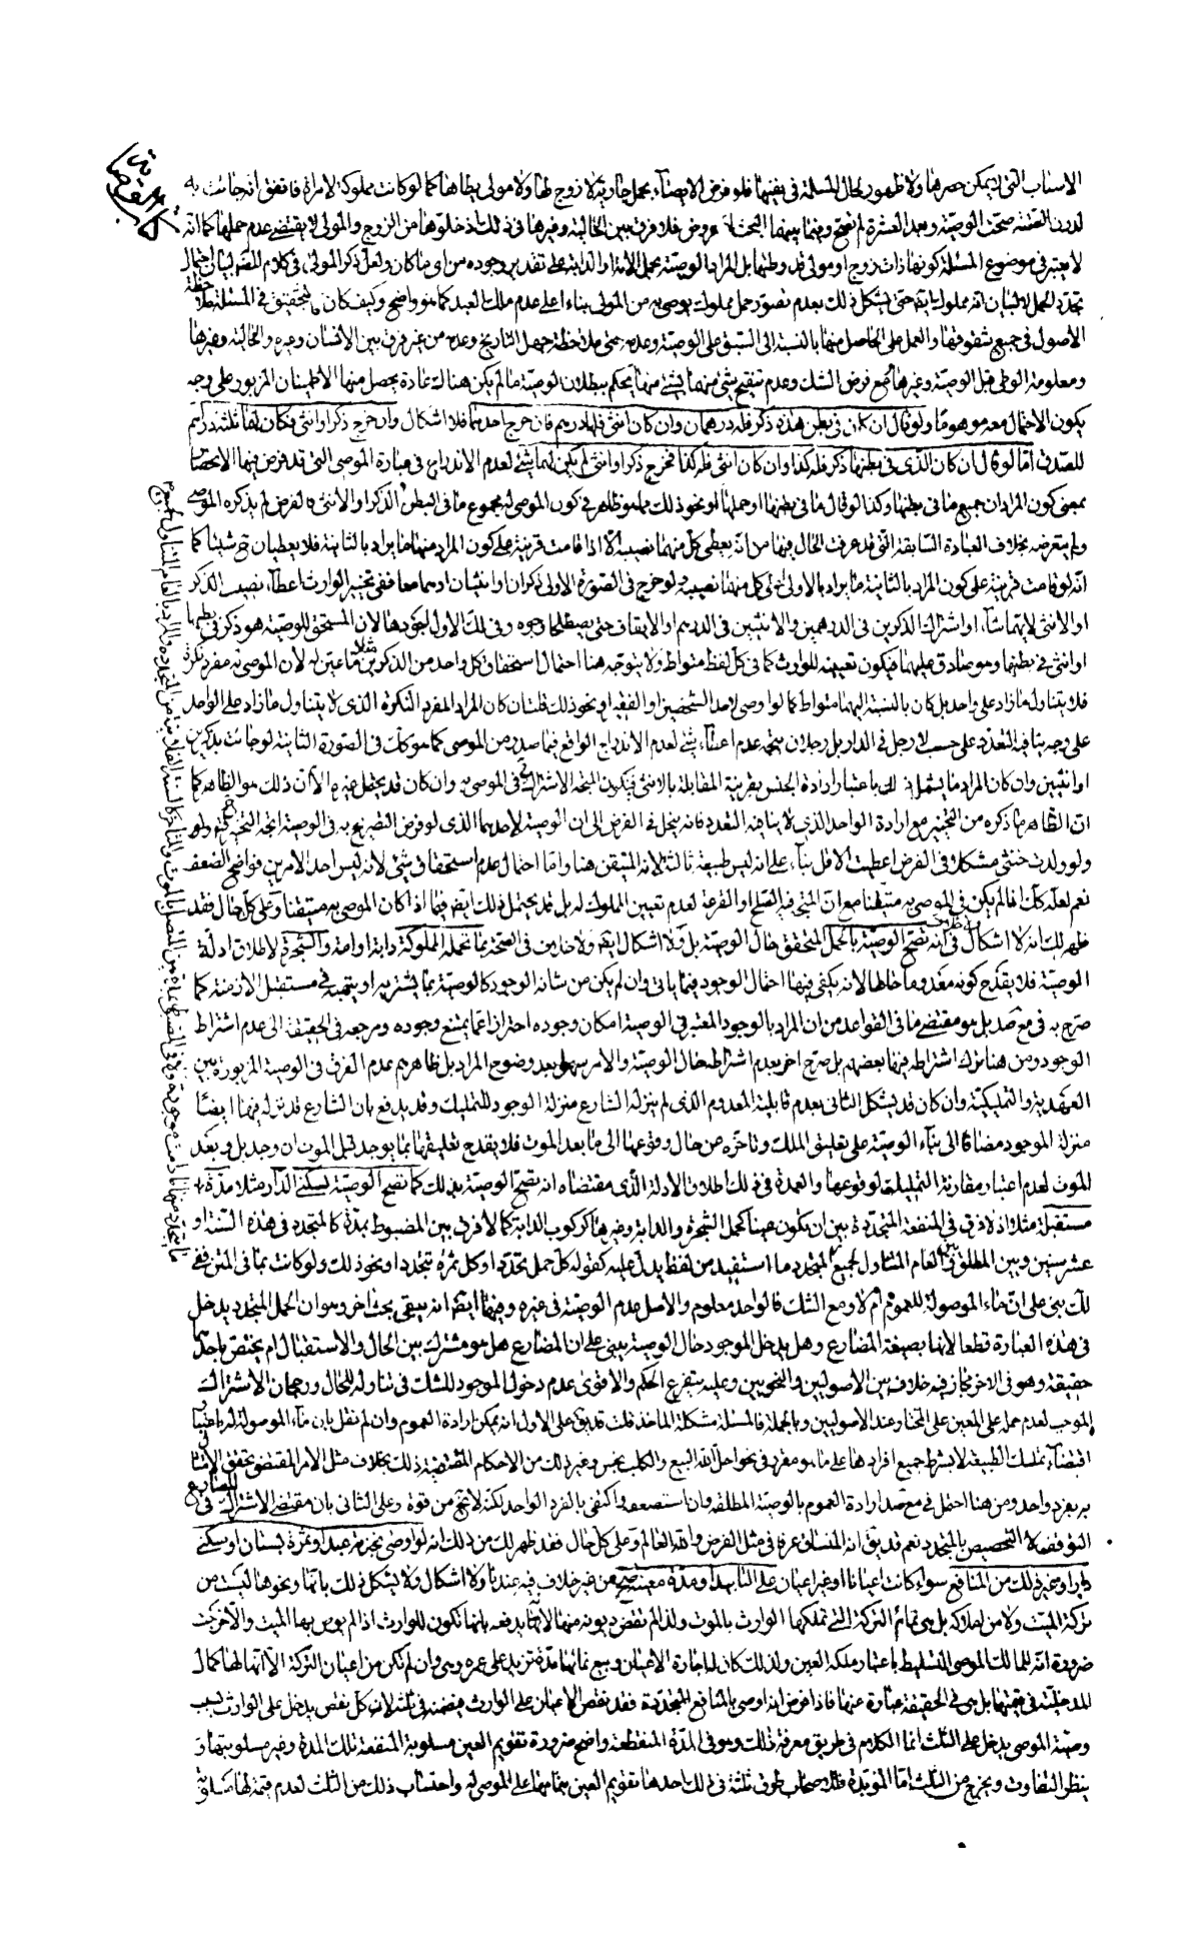 الاسباب التى لا يمكن حصرها ولا ظهور لحال المسلمة فى نفيها فلو فرض الايصاء بحمل جارية لا زوج لها ولا مولى يطاها كما لو كانت مملوكة لامراة فاتفق انه جائت به
لدون الستة صحت الوصية وبعد العشرة لم تصح وفيما بينهما البحث فلا فرق بين الخالية وغيرها فى ذلك اذ خلوها من الزوج والمولى لا يقتضى عدم حملها كما انه
لا يعتبر فى موضوع المسئلة كونها ذات زوج او مولى قد وطئها بل المراد الوصية بحمل الامة او الدابة على تقدير وجوده من اى ما كان ولعل ذكر المولى فى كلام المصنف لبيان احتمال
تجدد الحمل لا لبيان انه مملوك حتى يشكل ذلك بعدم تصور حمل مملوك يوصى به من المولى بناء على عدم ملك العبد كما هو واضح وكيف كان فالتحقيق فى المسئلة ملاحظة
الاصول فى جميع شقوقها والعمل على الحاصل منها بالنسبة الى السبق على الوصية وعدمه حتى ملاحظة جهل التاريخ وعدمه من غير فرق بين الانسان وغيره والخالية وغيرها
ومعلومة الوطى قبل الوصية وغيرها ومع فرض الشك وعدم تنقيح شئ منها لشئ منها يحكم ببطلان الوصية ما لم يكن هناك عادة يحصل منها الاطمينان المزبور على وجه
يكون الاحتمال معه موهوما ولو قال ان كان فى بطن هذه ذكر فله درهمان وان كان انثى فلها درهم فان خرج احدهما فلا اشكال وان خرج ذكر وانثى فكان لهما ثلثة دراهم
للصدق اما لو قال ان كان الذى فى بطنها ذكر فله كذا وان كان انثى فله كذا فخرج ذكر وانثى لم يكن لهما شئ لعدم الاندراج فى عبارة الموصى التى قد فرض فيها الاختصاص
بمعنى كون المراد ان جميع ما فى بطنها وكذا لو قال ما فى بطنها او حملها او نحو ذلك مما هو ظاهر فى كون الموصى له مجموع ما فى البطن الذكر او الانثى لا لفرض لم يذكره الموصى
ولم يتعرضه بخلاف العبارة السابقة التى قد عرفت الحال فيها من انه يعطى كل منهما نصيبه الا اذا قامت قرينة على كون المراد منها ما يراد بالثانية فلا يعطيان ح شيئا كما
انه لو قامت قرينة على كون المراد بالثانية ما يراد بالاولى اعطى كل منهما نصيبه ولو خرج فى الصورة الاولى ذكران او انثيان او هما معا ففى تخيير الوارث اعطاء نصيب الذكر
او الانثى لايهما شاء او اشتراك الذكرين فى الدرهمين والانثيين فى الدرهم او الايقاف حتى يصطلحا وجوه وفى لك الاول اجودها لان المستحق للوصية هو ذكر فى بطنها
او انثى فى بطنها وهو صادق عليهما فيكون تعيينه للوارث كما فى كل لفظ متواطى ولا يتوجه هنا احتمال استحقاق كل واحد من الذكرين مثلا ما عين له لان الموصى له مفرد نكرة
فلا يتناول ما زاد على واحد بل كان بالنسبة اليهما متواطيا كما لو اوصى لاحد الشخصين او الفقير او نحو ذلك قلت ان كان المراد المفرد النكرة الذى لا يتناول ما زاد على الواحد
على وجه ينافيه التعدد على حسب لا رجل فى الدار بل رجلان يتجه عدم اعطاء شئ لعدم الاندراج الواقع فيما صدر من الموصى كما هو كك فى الصورة الثانية لو جائت بذكرين
او انثيين وان كان المراد ما يشمل ذلك باعتبار ارادة الجنس بقرينة المقابلة بالانثى فيكون المتجه الاشتراك ح فى الموصى به وان كان قد يحتمل غيره الا ان ذلك هو الظاهر كما
ان الظاهر ما ذكره من التخيير مع ارادة الواحد الذى لا ينافيه التعدد فانه ينحل فى الفرض الى ان الوصية لاحدهما الذى لو فرض التصريح به فى الوصية اتجه التخيير
ولو ولدت خنثى مشكلا فى الفرض اعطيت الاقل بناء على انه ليس طبيعة ثالثة لانه المتيقن هنا واما احتمال عدم استحقاق شئ لانه ليس احد الامرين فواضح الضعف
نعم لعله كك اذا لم يكن فى الموصى به متيقنا مع ان المتجه فيه الصلح او القرعة لعدم تعيين المملوك له بل قد يحتمل ذلك ايضا فيما اذا كان الموصى به متيقنا وعلى كل حال فقد
ظهر لك انه لا اشكال فى انه تصح الوصية بالحمل المتحقق حال الوصية بل ولا اشكال ايضا ولا خلاف فى الصحة بما تحمله المملوكة دابة او امة والشجرة لاطلاق ادلة
الوصية فلا يقدح كونه معدوما حالها لانه يكفى فيها احتمال الوجود فيما ياتى وان لم يكن من شانه الوجود كالوصية بما يشتريه او يتهبه فى مستقبل الازمنة كما
صرح به فى مع صد بل هو مقتضى ما فى القواعد من ان المراد بالوجود المعتبر فى الوصية امكان وجوده احترازا عما يمتنع وجوده ومرجعه فى الحقيقة الى عدم اشتراط
الوجود ومن هنا ترك اشتراطه فيها بعضهم بل صرح اخر بعدم اشتراطه حال الوصية والامر سهل بعد وضوح المراد بل ظاهرهم عدم الفرق فى الوصية المزبورة بين
العهدية والتمليكية وان كان قد يشكل الثانى بعدم قابلية المعدوم الذى لم ينزله الشارع منزلة الوجود للتمليك وقد يدفع بان الشارع قد نزله فيها ايضا
منزلة الموجود مضافا الى بناء الوصية على تعليق الملك وتاخره من حال وقوعها الى ما بعد الموت فلا يقدح تعليقها بما يوجد قبل الموت ان وجد بل وبعد
الموت لعدم اعتبار مقارنة التمليك لوقوعها والعمدة فى ذلك اطلاق الادلة الذى مقتضاه انه تصح الوصية بذلك كما تصح الوصية بسكنى الدار مثلا مدة
مستقبلة مثلا اذ لا فرق فى المنفعة المتجددة بين ان يكون عينا كحمل الشجرة والدابة وغيرها كركوب الدابة كما لا فرق بين المضبوط بمدة كالمتجدد فى هذه السنة او
عشر سنين وبين المطلق بل العام المتناول لجميع المتجدد ما استفيد من لفظ يدل عليه كقوله كل حمل تجدد او كل ثمرة تتجدد او نحو ذلك ولو كانت بما فى المتن ففى
لك بنى على ان ماء الموصولة للعموم ام لا ومع الشك فالواحد معلوم والاصل عدم الوصية فى غيره وفيها ايضا انه يبقى بحث اخر وهو ان الحمل المتجدد يدخل
فى هذه العبارة قطعا لانها بصيغة المضارع وهل يدخل الموجود حال الوصية يبنى على ان المضارع هل هو مشترك بين الحال والاستقبال ام يختص باحدهما
حقيقة وهو فى الاخر مجاز فيه خلاف بين الاصوليين والنحويين وعليه يتفرع الحكم والاقوى عدم دخول الموجود للشك فى تناوله للحال ورجحان الاشتراك
الموجب لعدم حمله على المعين على المختار عند الاصوليين وبالجملة فالمسئلة مشكلة الماخذ قلت قد يق على الاول انه يمكن ارادة العموم وان لم نقل بان ماء الموصولة له
اقتضاء تمليك الطبيعة لا بشرط جميع افرادها على ما هو مقرر فى نحو احل الله البيع والكلب نجس وغير ذلك من الاحكام المقتضية ذلك بخلاف مثل الامر المقتضى تحقق الامتثال
به بفرد واحد ومن هنا احتمل فى مع صد ارادة العموم بالوصية المطلقة وان استضعفه واكتفى بالفرد الواحد لكنه لا يخ من قوة وعلى الثانى بان مقتضى الاشتراك فى المضارع
التوقف لا التخصيص بالمتجدد نعم قد يق انه المنساق عرفا فى مثل الفرض والله العالم وعلى كل حال فقد ظهر لك من ذلك انه لو اوصى بخدمة عبد او ثمرة بستان او سكنى
دار او غير ذلك من المنافع سواء كانت اعيانا او غير اعيان على التابيد او مدة معينة صح من غير خلاف فيه عندنا ولا اشكال ولا يشكل ذلك بانها ونحوها ليست من
تركة الميت ولا من املاكه بل هى نماء التركة التى تملكها الوارث بالموت ولذا لم تقض ديونه منها لانا يدفعه بانها تكون للوارث اذا لم يوص بها الميت والا خرجت
ضرورة انه للمالك الموصى التسليط باعتبار ملكه العين ولذلك كان له اجارة الاعيان وبيع نمائها مدة تزيد على عمره وهى وان لم تكن من اعيان التركة الا انها لها كمال
المدخلية فى قيمتها بل هى فى الحقيقة عبارة عنها فاذا فرض انه اوصى بالمنافع المتجددة فقد نقص الاعيان على الوارث فيضمنه فى ثلثه لان كل نقص يدخل على الوارث بسبب
وصية الموصى يدخل على الثلث انما الكلام فى طريق معرفة ذلك وهو فى المدة المنقطعة واضح ضرورة تقويم العين مسلوبة المنفعة تلك المدة وغير مسلوبتها و
ينظر التفاوت ويخرج من الثلث اما المؤبدة فللاصحاب طرق ثلثة فى ذلك احدها تقويم العين بتمامها على الموصى له واحتساب ذلك من الثلث لعدم قيمة لها مسلوبة